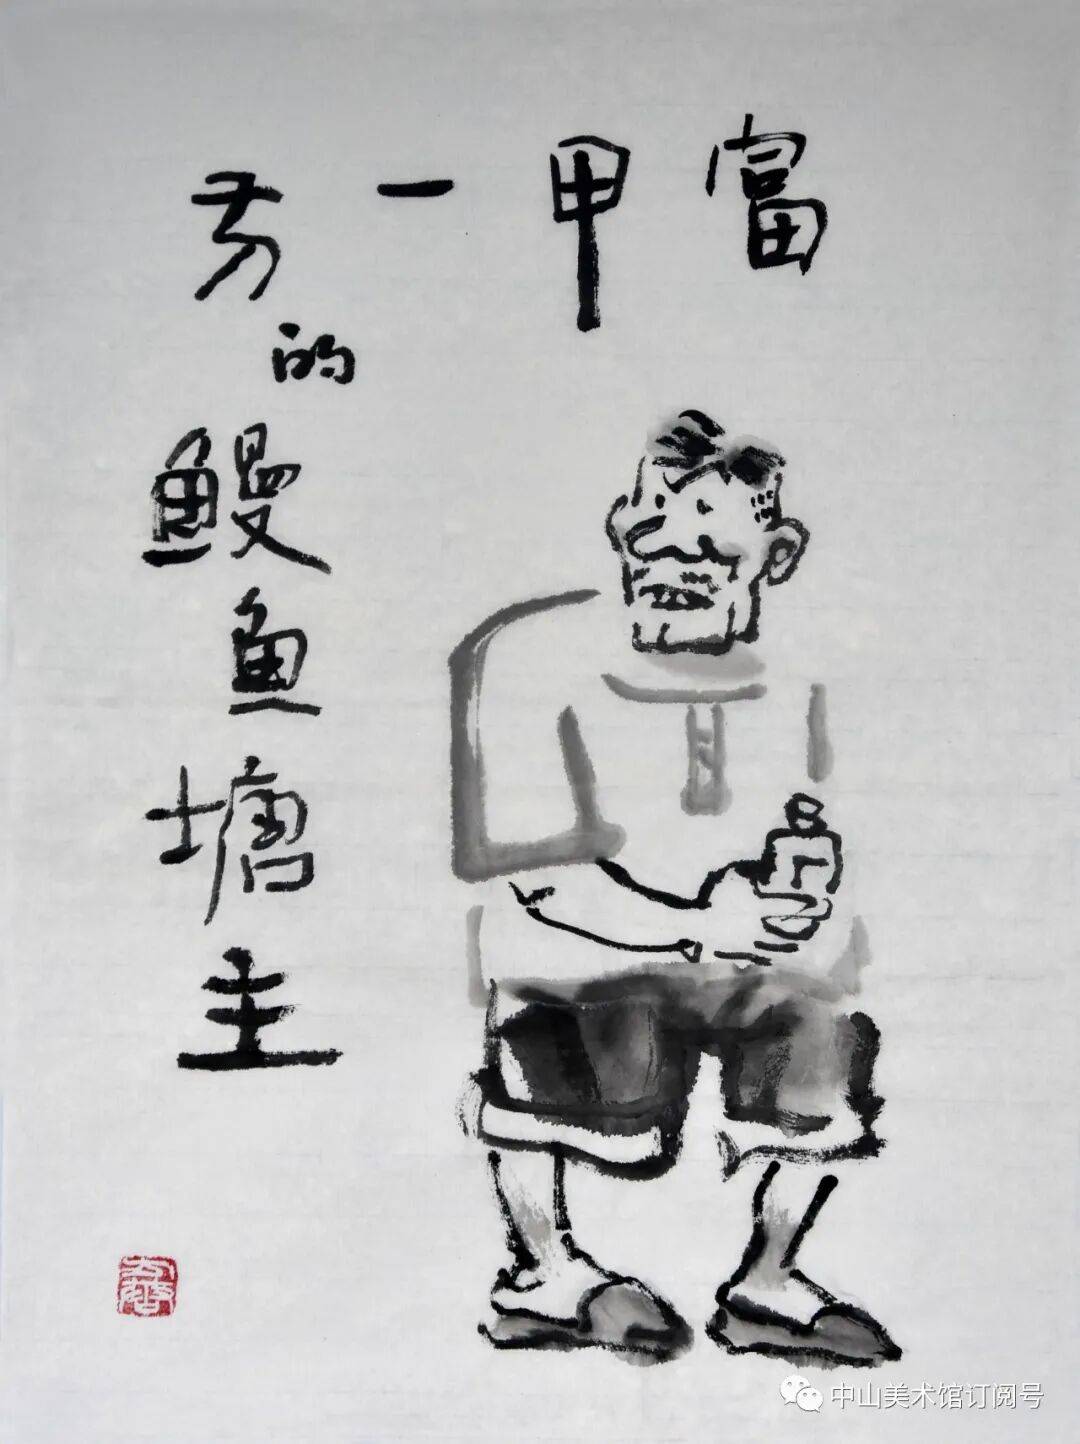 富甲一方
的鳗鱼塘主
中山美术馆订阅号